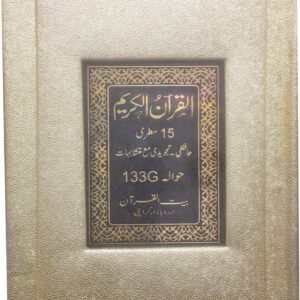 القرآن الکریم
15 سطری
حافظی ۔ تجویدی مع متشابہات
حوالہ 133G
بیت القرآن
اردو بازار کراچی